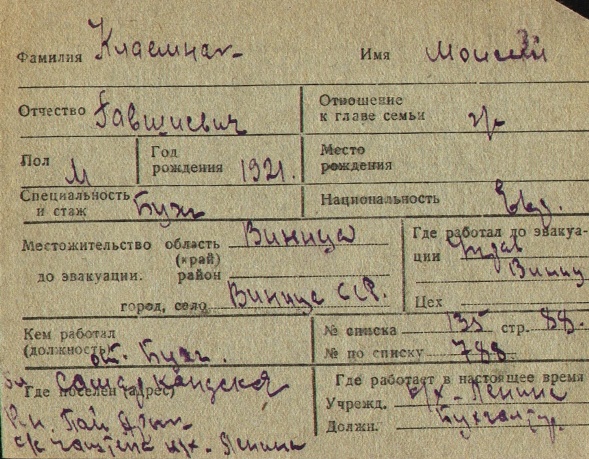 Фамилия Имя Моисей
Отчество Гавшиевич Отношение к главе семьи г/с
Пол М Год рождения 1921. Место рождения
Специальность и стаж Бухг Национальность Евр.
Местожительство до эвакуации. область (край) Виница
район
город, село Виница ССР.
Где работал до эвакуации
Виниц
Цех
Кем работал (должность) ст. Бухг.
№ списка 135 стр. 88.
№ по списку 788
Где поселен (адрес) Самаркандская
Р-н. Пай Арык
с/с к/х. Ленина
Где работает в настоящее время
Учрежд. к/х - Ленина
Должн. Бухгалтер.